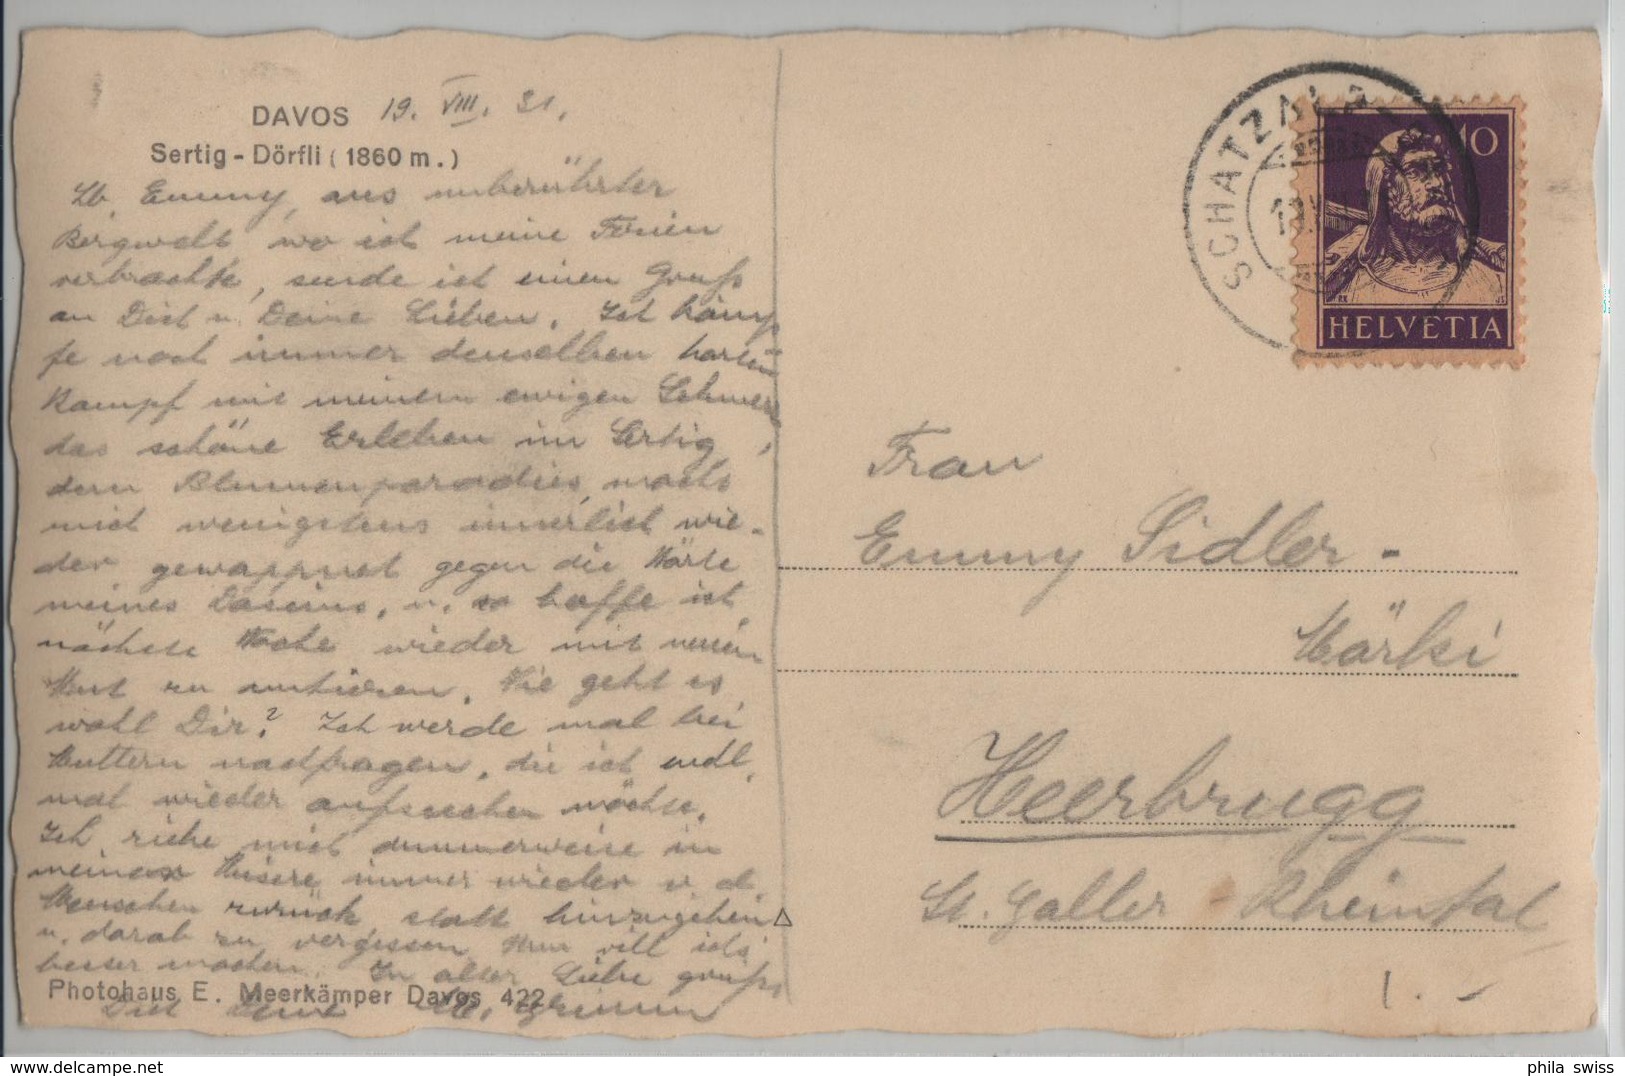 DAVOS 19. VIII. 31.
Sertig - Dörfli (1860 m.)
Lb. Emmy, aus unberührter
Bergwelt, wo ich meine Ferien
verbrachte, sende ich einen Gruß
an Dich u. Deine Lieben. Ich kämp
fe noch immer denselben harten
Kampf mit meinem ewigen
das schöne Erleben im Sertig,
dem Blumenparadies, macht
mich wenigstens innerlich wie-
der gewappnet gegen die Härte
meines Daseins, u. so hoffe ich
nächste Woche wieder mit neuem
Mut zu Wie geht es
wohl Dir? Ich werde mal bei
Muttern nachfragen, die ich endl.
mal wieder aufsuchen möchte.
Ich ziehe mich dummerweise in
meiner Misere immer wieder v. d.
Menschen zurück statt hinzugehen
u. darob zu vergessen. Nun will ich's
besser machen. In alter Liebe grüßt
Photohaus E. Meerkämper Davos 422
Dich Deine
SCHATZALP
10
HELVETIA
Frau
Emmy Sidler -
Märki
Heerbrugg
St. Galler Rheintal
1.-
phila swiss